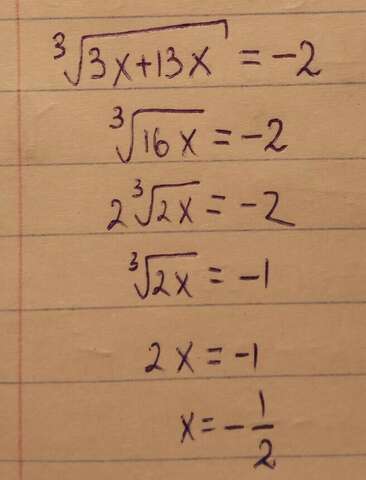 ∛(3x+13x) = -2
∛(16x) = -2
2∛(2x) = -2
∛(2x) = -1
2x = -1
x = -1/2